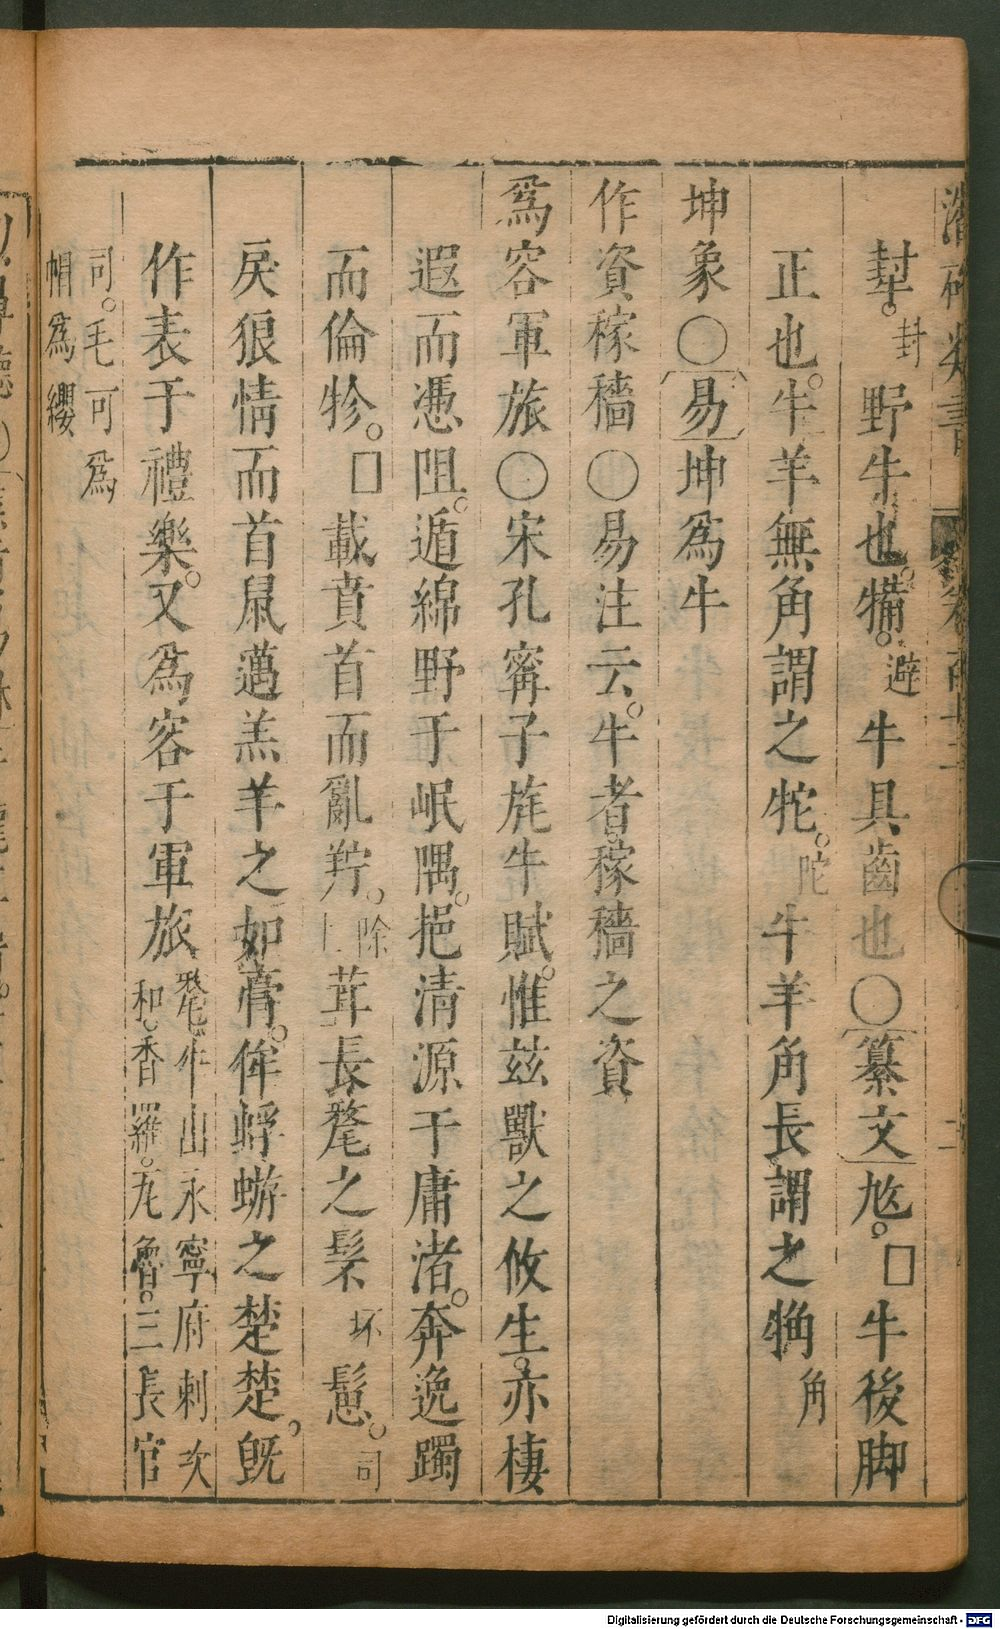 潛確類書
犎封野牛也犕避牛具齒也○纂文㹊□牛後脚
正也牛羊無角謂之㸰陀牛羊角長謂之觕角
坤象○易坤為牛
作資稼穡○易注云牛者稼穡之資
為容軍旅○宋孔寗子旄牛賦惟茲獸之攸生亦棲
遐而憑阻遁綿野于岷隅挹清源于庸渚奔逸躅
而倫㐱□載賁首而亂羜除上茸長髦之髬坏髵司
戾狠情而首鼠邁羔羊之如膏侔蜉蝣之楚楚旣
作表于禮樂又為容于軍旅氂牛出永寧府刺次
和香羅九魯三長官
司毛可為
帽為纓
Digitalisierung gefördert durch die Deutsche Forschungsgemeinschaft - DFG